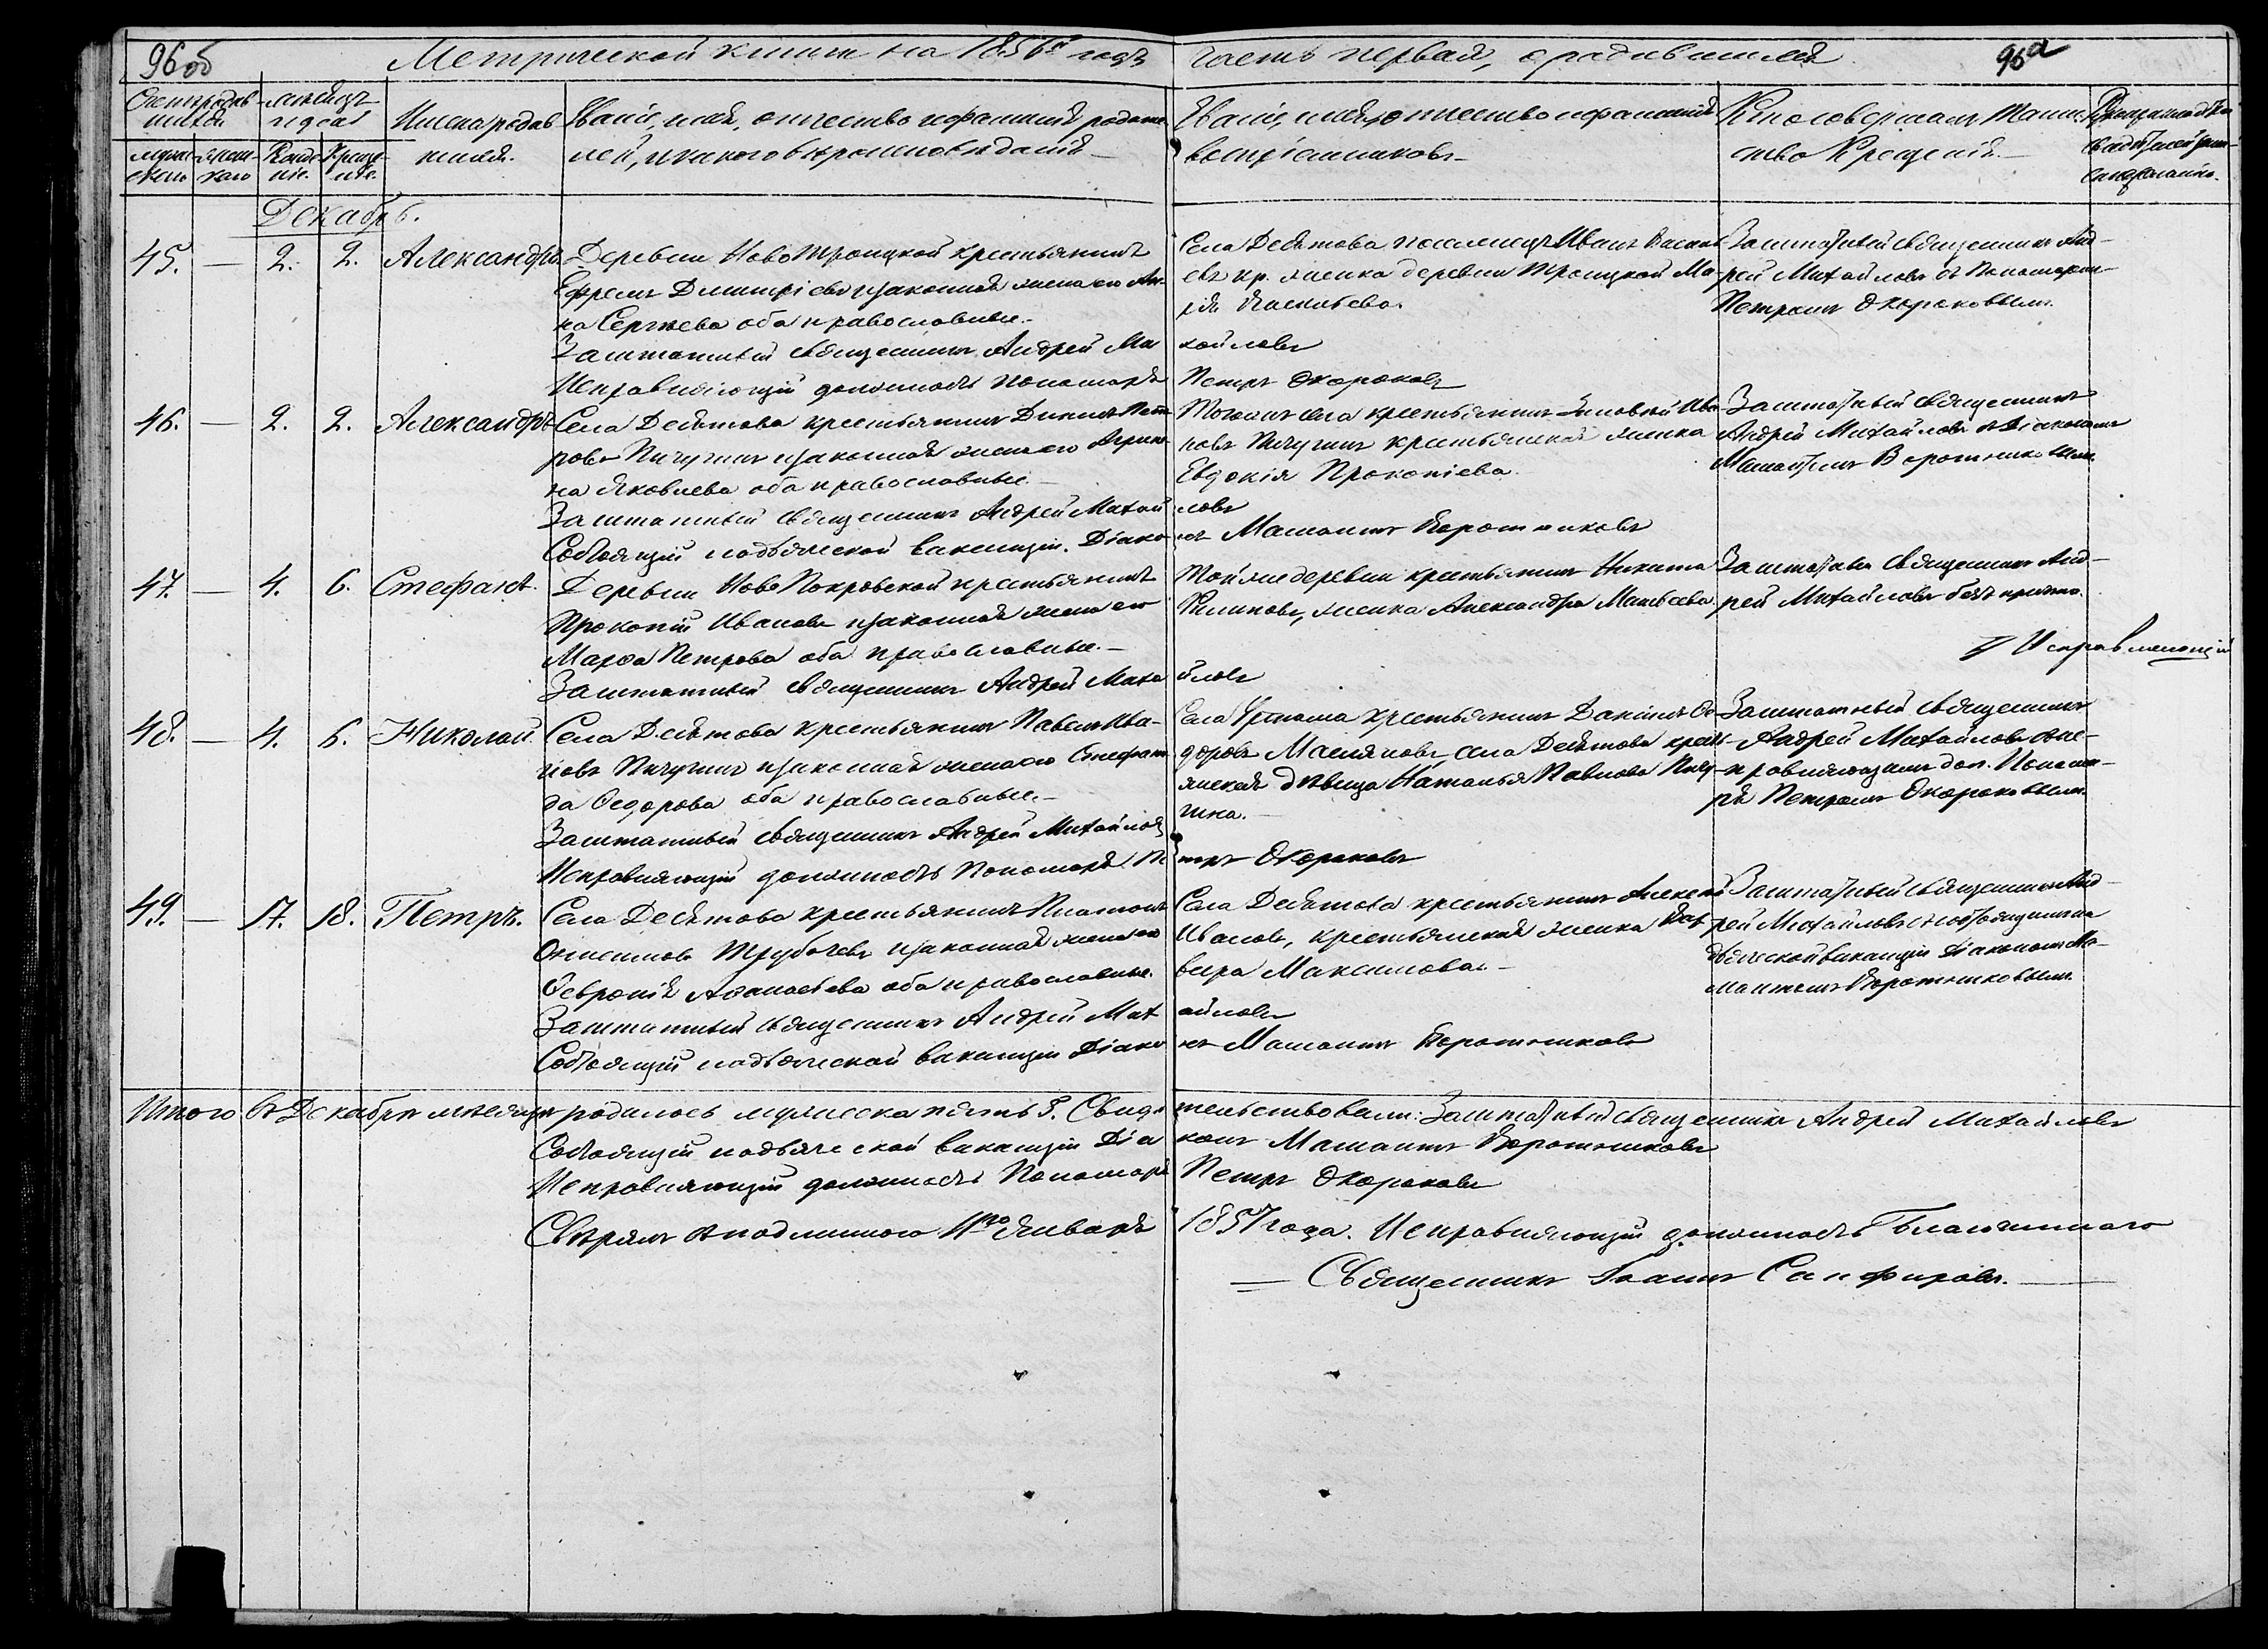 96 об
Метрической книги на 1856й годъ часть первая, о родившихся
96а
Счетъ родив- месяцъ
шихся и день
Имена родив
шихся.
Званіе, имя, отчество и фамилія родите
лей, и какого вѣроисповѣданія
Званіе, имя, отчество и фамилія
воспріемниковъ
Кто совершалъ Таин-
ство Крещенія.
муже- жен-
скаго скаго
Рожде- Креще-
ніе. ніе.
Декабрь.
45. — 2. 2. Александръ
Деревни НовоТроицкой крестьянинъ
Ефремъ Димитріевъ и законная жена его Ан-
на Сергѣева оба православные.
Заштатный священникъ Андрей Ми хайловъ
Исправляющій должность пономаря Петръ Окороковъ
Села Десятова поселенецъ Иванъ Василь
евъ кр. женка деревни Троицкой Ма-
рія Васильева.
Заштатный священникъ Анд-
рей Михайловъ съ Пономаремъ
Петромъ Окороковымъ.
46. — 2. 2. Александръ
Села Десятова крестьянинъ Петъ-
ровъ Пичугинъ и законная жена его
на Яковлева оба православные
Заштатный священникъ Андрей Михай ловъ
Состоящій на дьяческой вакансіи Діако нъ Воротниковъ
Тогожъ села крестьянинъ Ива-
новъ Пичугинъ крестьянская женка
Евдокія Прокопіева.
Заштатный священникъ
Андрей Михайловъ съ Діакономъ
Воротниковымъ.
47. — 4. 6. Стефанъ.
Деревни НовоПокровской крестьянинъ
Прокопій Ивановъ и законная жена его
Марѳа Петрова оба православные.
Заштатный священникъ Андрей Миха йловъ
Той же деревни крестьянинъ Никита
Филиповъ, женка Александра Матвѣева.
Заштатный священникъ Анд-
рей Михайловъ безъ причта.
Исправляющій
48. — 4. 6. Николай.
Села Десятова крестьянинъ Павелъ Ива-
новъ Пичугинъ и законная жена его Стефани-
да Ѳедорова оба православные.
Заштатный священникъ Андрей Михайловъ
Исправляющій должность Пономаря Пе тръ Окороковъ
Села крестьянинъ Даніилъ Ѳе-
доровъ Масляновъ села Десятова кресть-
янская дѣвица Наталья Павлова Пичу-
гина.
Заштатный священникъ
Андрей Михайловъ съ ис-
правляющимъ дол. Понома-
ря Петромъ Окороковымъ.
49. — 17. 18. Петръ.
Села Десятова крестьянинъ Платонъ
Онисимовъ Трубачевъ и законная жена его
Ѳевронія Аѳанасьева оба православные.
Заштатный священникъ Андрей Мих айловъ
Состоящій на дьяческой вакансіи Діако нъ Воротниковъ
Села Десятова крестьянинъ Алексѣй
Ивановъ, крестьянская женка Вар-
вара Максимова.
Заштатный священникъ Анд-
рей Михайловъ съ состоящимъ на
дьяческой вакансіи Діакономъ
Воротниковымъ.
Итого въ Декабрѣ месяцѣ родилось мужеска пять 5. Свидѣ тельствовали: Заштатный священникъ Андрей Михайловъ
Состоящій на дьяческой вакансіи Діа конъ Воротниковъ
Исправляющій должность Пономаря Петръ Окороковъ
Свѣрялъ с подлиннаго 11го Января 1857 года. Исправляющій должность Благочиннаго
Священникъ Іоаннъ Сапфировъ.